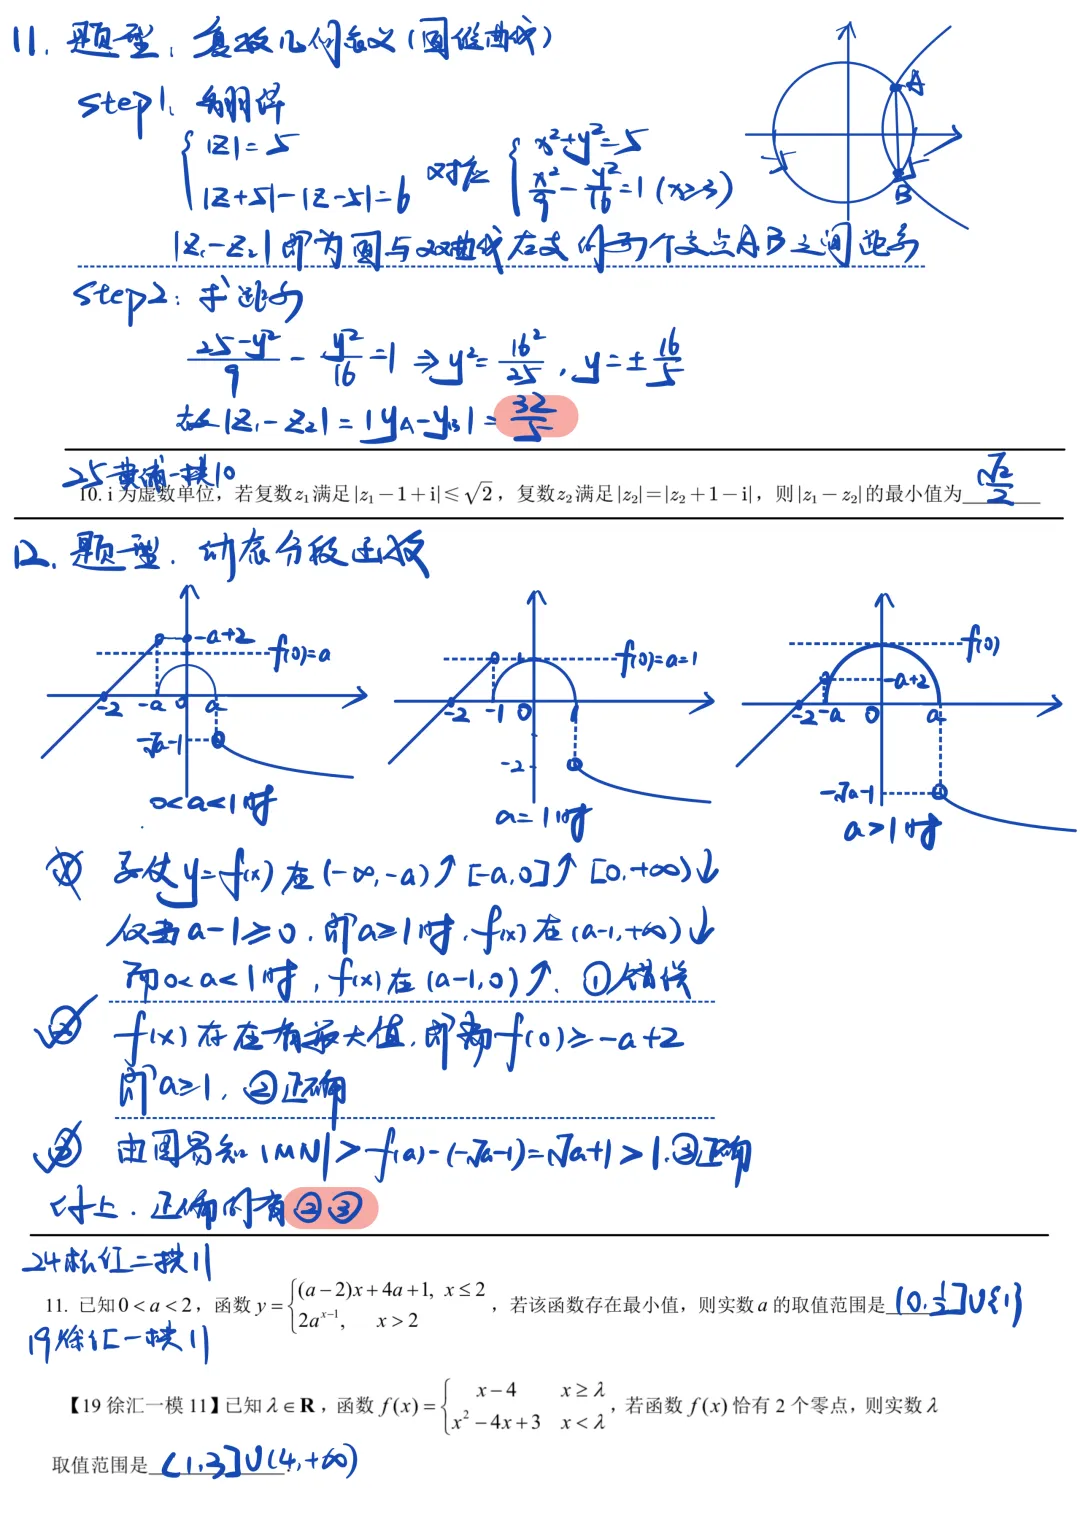 11. 题型：复数几何意义(圆锥曲线)
Step1. 翻译
{ |z|=5
|z+5|-|z-5|=6 对应 { x²+y²=5
x²/9 - y²/16 =1 (x≥3)
A
-5 5
B
|z₁-z₂| 即为圆与双曲线右支的两个交点A、B之间距离
Step2: 求距离
(25-y²)/9 - y²/16 =1 ⇒ y²= 16²/25 , y=± 16/5
故 |z₁-z₂| = |y_A-y_B| = 32/5
25黄浦一模10
10. i 为虚数单位，若复数 z₁ 满足 |z₁-1+i|≤√2，复数 z₂ 满足 |z₂|=|z₂+1-i|，则 |z₁-z₂| 的最小值为 √2/2
12. 题型：动态分段函数
-a+2
f(0)=a
-2 -a 0 a
-√a-1
0<a<1时
f(0)=a=1
-2 -1 0 1
-2
a=1时
f(0)
-a+2
-2 -a 0 a
-√a-1
a>1时
① y=f(x) 在 (-∞,-a)↑ [-a,0]↑ [0,+∞)↓
仅当 a-1≥0，即 a≥1时，f(x)在(a-1,+∞)↓
而0<a<1时，f(x)在(a-1,0)↑. ①错误
② f(x)存在有最大值，即需 f(0)≥-a+2
即 a≥1. ②正确
③ 由图易知 |MN|>f(a)-(-√a-1)=√a+1>1. ③正确
综上，正确的有②③
24松江二模11
11. 已知 0<a<2，函数 y= { (a-2)x+4a+1, x≤2
2a^{x-1}, x>2 ，若该函数存在最小值，则实数 a 的取值范围是 (0,1/2]∪{1}
19徐汇一模11
【19 徐汇一模 11】已知 λ∈R，函数 f(x)= { x-4 x≥λ
x²-4x+3 x<λ ，若函数 f(x) 恰有 2 个零点，则实数 λ
取值范围是 (1,3]∪(4,+∞) .